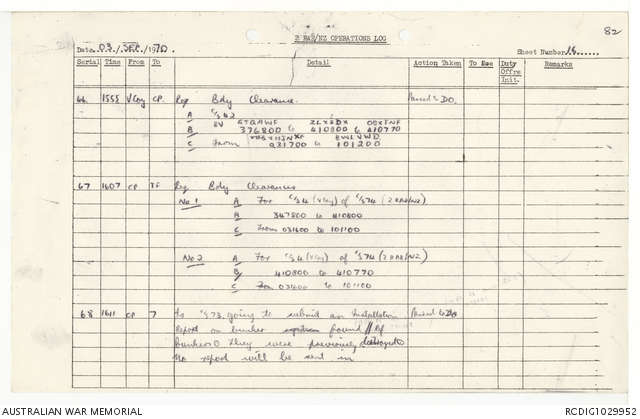 82
2 RAR/NZ OPERATIONS LOG
Date. 03./.SEP./1970.
Sheet Number 16......
Serial Time From To Detail Action Taken To See Duty Offrs Init. Remarks
66 1555 V Coy CP. Req Bdy Clearance. Passed to DO.
A C/S 42
B 376800 to 410800 to 410770
C From 031700 to 101200
67 1607 CP TF Req Bdy Clearance
No 1 A For C/S 4 (V Coy) of C/S 74 (2 RAR/NZ)
B
347800 to 410800
C From 031600 to 101100
No 2 A For C/S 4 (V Coy) of C/S 74 (2 RAR/NZ
B 410800 to 410770
C From 031600 to 101100
68 1611 CP 7 Is C/S 73 going to submit an Installation Passed to DO
Report on bunker found // Of
bunkers they were previously destroyed
No report will be sent in
AUSTRALIAN WAR MEMORIAL
RCDIG1029952